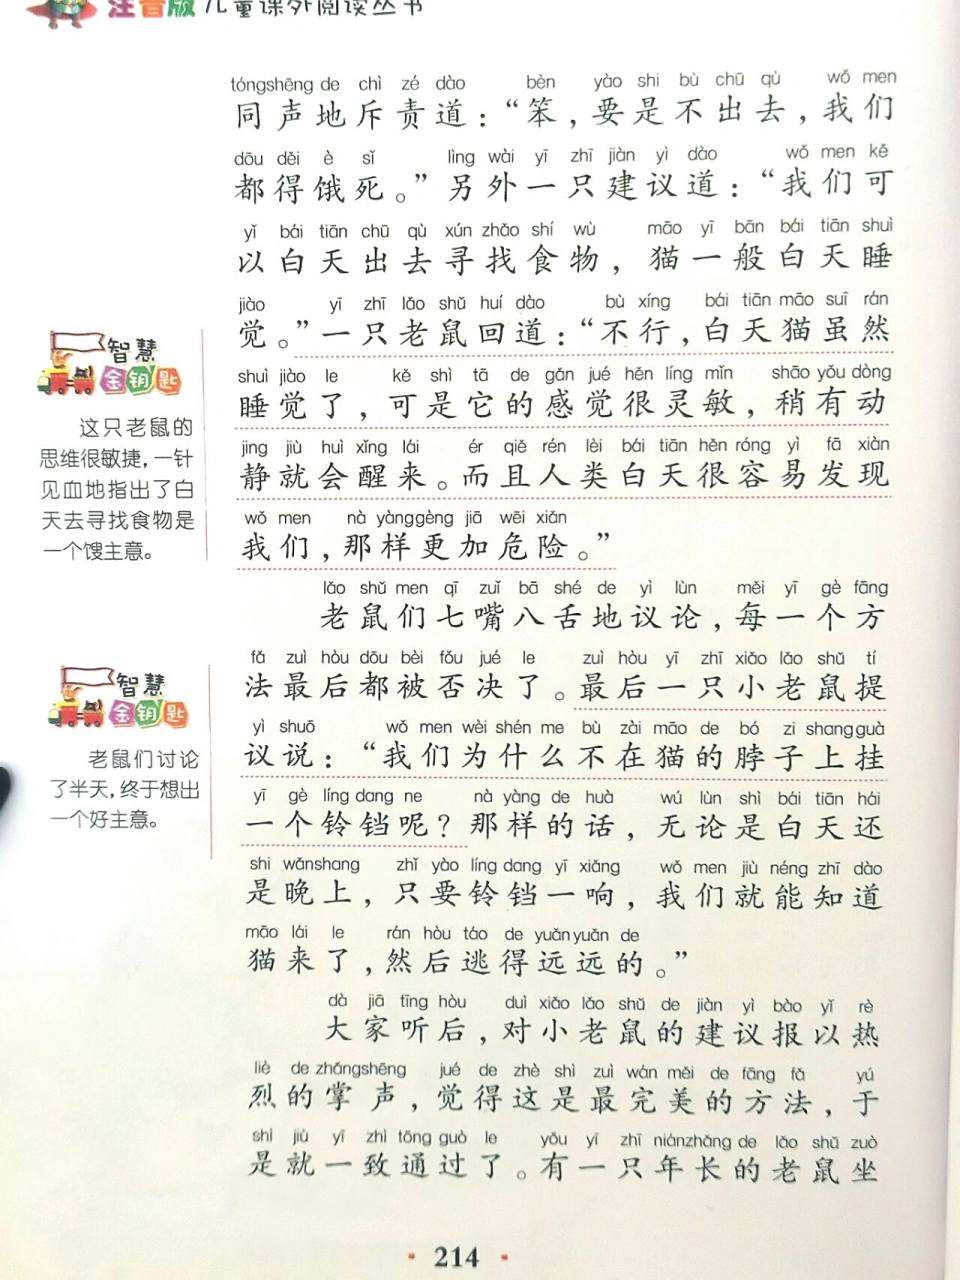 注音版 儿童课外阅读丛书
tóngshēng de chì zé dào bèn yào shi bù chū qù wǒ men
同声地斥责道：“笨，要是不出去，我们
dōu děi è sǐ lìng wài yī zhī jiàn yì dào wǒ men kě
都得饿死。”另外一只建议道：“我们可
yǐ bái tiān chū qù xún zhǎo shí wù māo yī bān bái tiān shuì
以白天出去寻找食物，猫一般白天睡
jiào yī zhī lǎo shǔ huí dào bù xíng bái tiān māo suī rán
觉。”一只老鼠回道：“不行，白天猫虽然
shuì jiào le kě shì tā de gǎn jué hěn líng mǐn shāo yǒu dòng
睡觉了，可是它的感觉很灵敏，稍有动
jing jiù huì xǐng lái ér qiě rén lèi bái tiān hěn róng yì fā xiàn
静就会醒来。而且人类白天很容易发现
wǒ men nà yànggèng jiā wēi xiǎn
我们，那样更加危险。”
智慧
金钥匙
这只老鼠的
思维很敏捷，一针
见血地指出了白
天去寻找食物是
一个馊主意。
lǎo shǔ men qī zuǐ bā shé de yì lùn měi yī gè fāng
老鼠们七嘴八舌地议论，每一个方
fǎ zuì hòu dōu bèi fǒu jué le zuì hòu yī zhī xiǎo lǎo shǔ tí
法最后都被否决了。最后一只小老鼠提
yì shuō wǒ men wèi shén me bù zài māo de bó zi shang guà
议说：“我们为什么不在猫的脖子上挂
yī gè líng dang ne nà yàng de huà wú lùn shì bái tiān hái
一个铃铛呢？那样的话，无论是白天还
shi wǎnshang zhǐ yào líng dang yī xiǎng wǒ men jiù néng zhī dào
是晚上，只要铃铛一响，我们就能知道
māo lái le rán hòu táo de yuǎn yuǎn de
猫来了，然后逃得远远的。”
智慧
金钥匙
老鼠们讨论
了半天，终于想出
一个好主意。
dà jiā tīng hòu duì xiǎo lǎo shǔ de jiàn yì bào yǐ rè
大家听后，对小老鼠的建议报以热
liè de zhǎngshēng jué de zhè shì zuì wán měi de fāng fǎ yú
烈的掌声，觉得这是最完美的方法，于
shì jiù yī zhì tōng guò le yǒu yī zhī niánzhǎng de lǎo shǔ zuò
是就一致通过了。有一只年长的老鼠坐
214